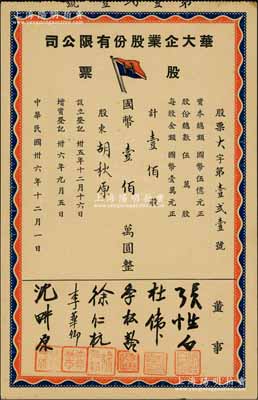 華大企業股份有限公司
股票
股票大字第壹貳壹號
資本總額 國幣伍億元正
股份總數 伍萬股
每股金額 國幣壹萬元正
計壹佰股
國幣壹佰萬圓整
股東 胡秋原
設立登記 卅五年十二月十六日
增資登記 卅六年九月五日
中華民國卅六年十二月一日
董事
張性白
杜偉
李松齡
徐仁杭
李華卿
沈畊原